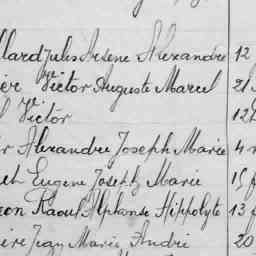 llard Jules Arsène Alexandre 12
ier Victor Auguste Marcel 21
l Victor 12
r Alexandre Joseph Marie 4
eh Eugene Joseph Marie 15
eon Raoul Alphonse Hippolyte 13
ire Jean Marie André 20